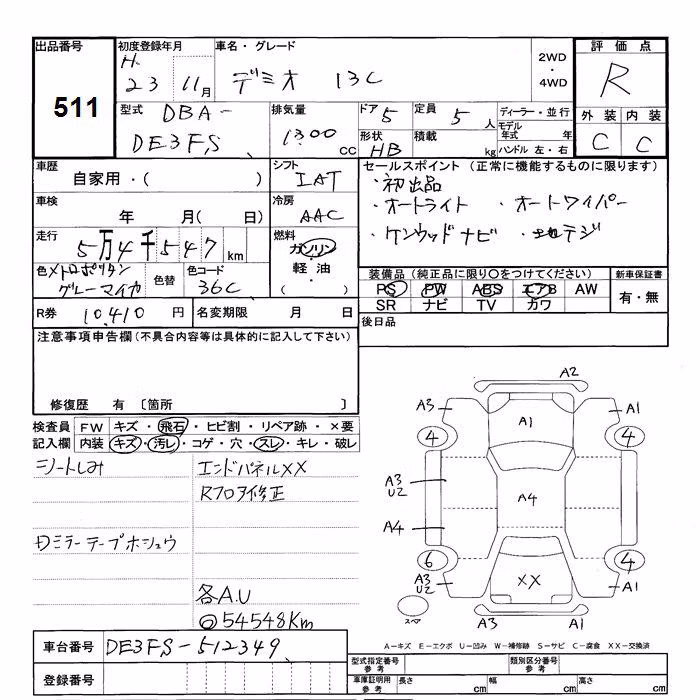 出品番号 初度登録年月 車名・グレード 2WD・4WD 評価点
511 H.23 11月 デミオ 13C R
型式 DBA-DE3FS 排気量 1300cc ドア 5 定員 5人 ディーラー・並行 外装 内装
形状 HB 積載 kg モデル年式 年 C C
ハンドル 左・右
車歴 シフト セールスポイント (正常に機能するものに限ります)
自家用・( ) IAT ・初出品
車検 冷房 ・オートライト ・オートワイパー
年 月( 日) AAC ・ケンウッドナビ・地デジ
走行 燃料
5万4千547km ガソリン・軽油・( )
色 メトロポリタングレーマイカ 色替 色コード 36C 装備品(純正品に限り〇をつけてください) 新車保証書
PS PW ABS エアB AW 有・無
SR ナビ TV カワ
R券 10,410円 名変期限 月 日 後日品
注意事項申告欄(不具合内容等は具体的に記入して下さい)
修復歴 有 〔箇所 〕
検査員 FW キズ・飛石・ヒビ割・リペア跡・×要
記入欄 内装 キズ・汚レ・コゲ・穴・スレ・キレ・破レ
シートしみ エンドパネルXX
Rフロア修正
ミラーテープホシュウ
各A.U
54548Km
A2
A3 A1 A1
4 4
A3 U2 A4
A4
6 4
A3 U2 XX A1
スペア A3 A1
A-キズ E-エクボ U-凹み W-補修跡 S-サビ C-腐食 XX-交換済
車台番号 DE3FS-512349
型式指定番号 参考 類別区分番号 参考
登録番号 車庫証明用 参考 長さ cm 幅 cm 高さ cm